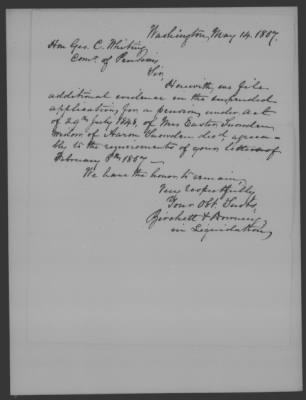 Washington, May 14. 1857.
Hon Geo. C. Whiting,
Comr. of Pensions
Sir,
Herewith, we file
additional evidence in the suspended
application, for a pension, under Act
of 29th July 1848, of Mrs Easter Snowden
widow of Aaron Snowden decd, agreea-
bly to the requirements of your letter of
February 8th 1857—
We have the honor to remain,
Very respectfully
Your Obt. Servts,
Birchett & Downing
in Liquidation,